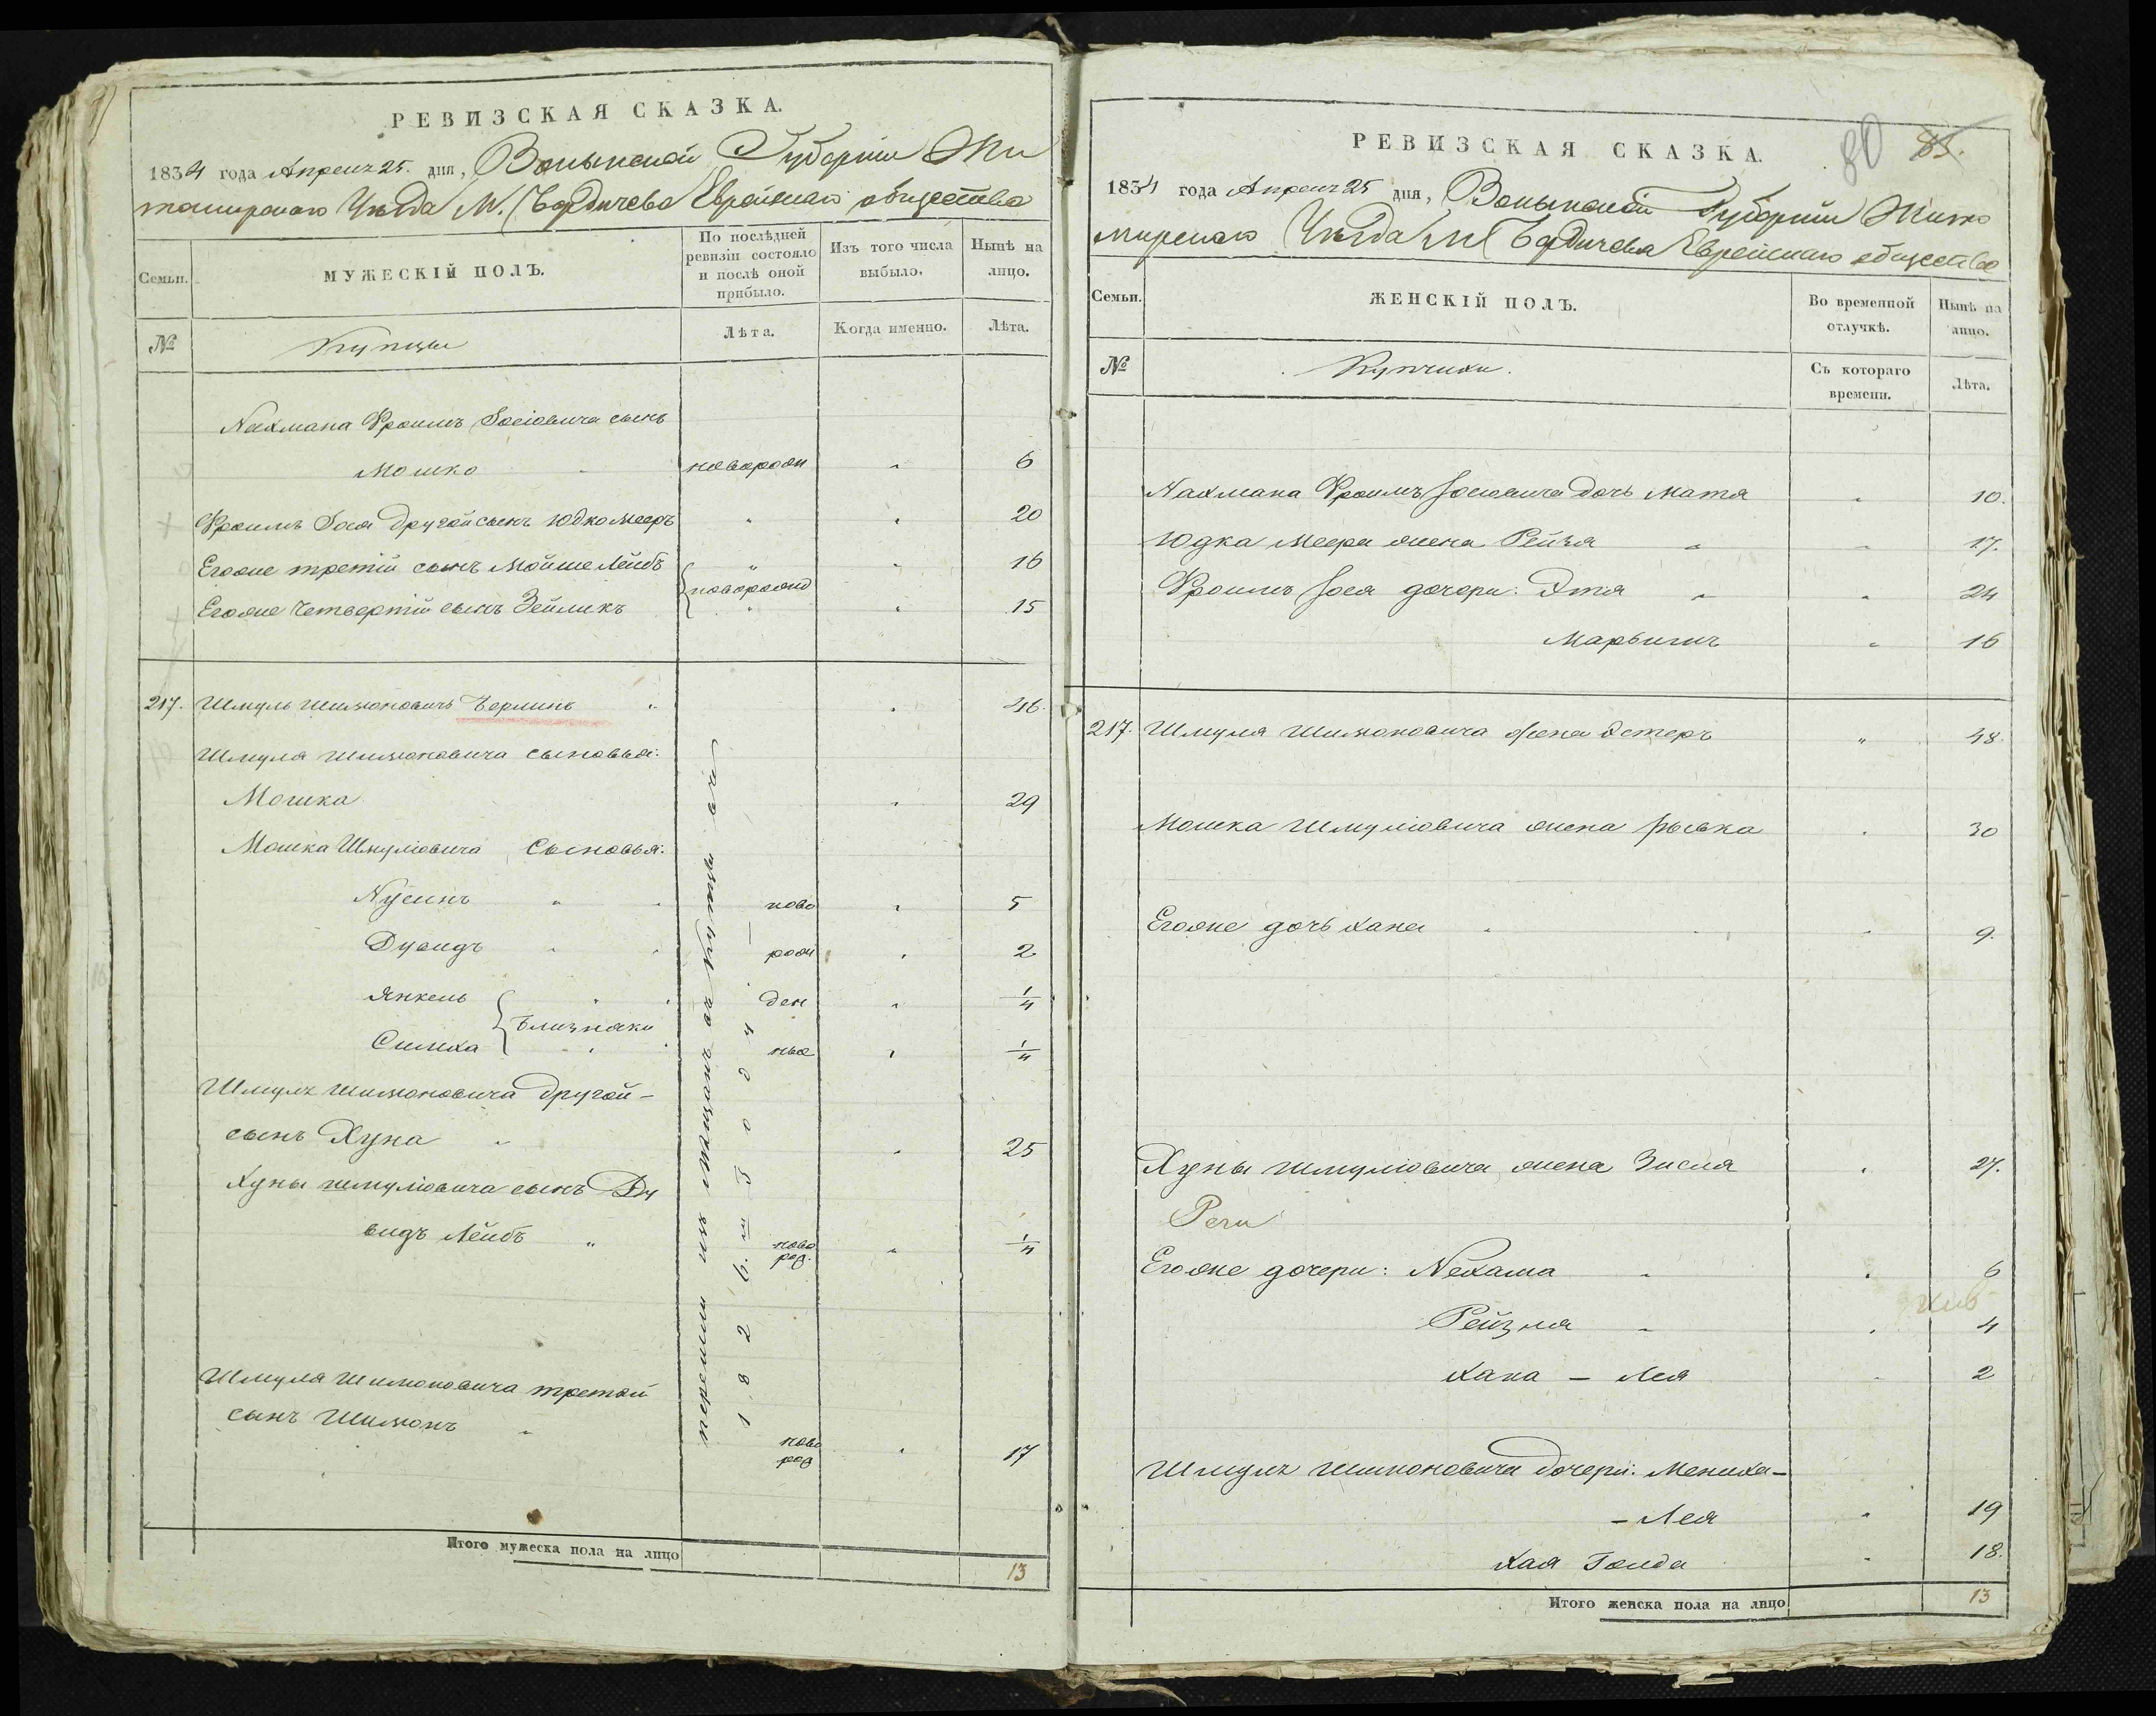 РЕВИЗСКАЯ СКАЗКА.
1834 года Апреля 25. дня, Волынской Губернии Жи
томирскаго Уезда М. Бердичева Еврейскаго общества
Семьи.
МУЖЕСКІЙ ПОЛЪ.
По послѣдней ревизіи состояло и послѣ оной прибыло.
Изъ того числа выбыло.
Нынѣ на лицо.
№
Купцы
Лѣта.
Когда именно.
Лѣта.
Нахмана Фроимъ Іосіовича сынъ
Мошко новорожд " 6
Фроимъ Іося другой сынъ Юдко Мееръ " " 20
Егоже третій сынъ Мойше Лейбъ " " 16
новорожд
Егоже Четвертій сынъ Зейликъ " " 15
217. Шмуль Шимоновичъ Берлинъ " " 46.
Шмуля Шимоновича сыновья:
Мошка " 29
Мошка Шмуліовича Сыновья:
Нусинъ " " ново " 5
Дувидъ " " рож " 2
Янкель " " ден " 1/4
близнаки
Симха " " ные " 1/4
Шмуля Шимоновича другой -
сынъ Хуна " " 25
Хуны шмуліовича сынъ Ду
видъ Лейбъ " ново род. " 1/4
Шмуля Шимоновича третій
сынъ Шимонъ " ново род " 17
перешли изъ мещанъ въ купцы съ
1826. ш Г о д у —
Итого мужеска пола на лицо 13
80 85.
РЕВИЗСКАЯ СКАЗКА.
1834 года Апреля 25 дня, Волынской Губерніи Жито
мирскаго Уезда М Бердичева Еврейскаго общества
Семьи.
ЖЕНСКІЙ ПОЛЪ.
Во временной отлучкѣ.
Нынѣ на лицо.
№
Купчихи.
Съ котораго времени.
Лѣта.
Нахмана Фроимъ Іосіовича дочь Матя " 10.
Юдка Меера жена Рейзя " " 17.
Фроимъ Іося дочери: Этя " " 24
Марьимъ " 16
217. Шмуля Шимоновича жена Эстеръ " 48.
Мошка Шмуліовича жена Рывка " 30
Егоже дочь хана " " " 9.
Хуны шмуліовича жена Зисля " 27.
Егоже дочери: Нехама " " 6
Рейзля " " 4
хана — Лея " 2
Шмуля Шимоновича дочери: Мениха-
- Лея " 19
хая Голда " 18.
Итого женска пола на лицо 13